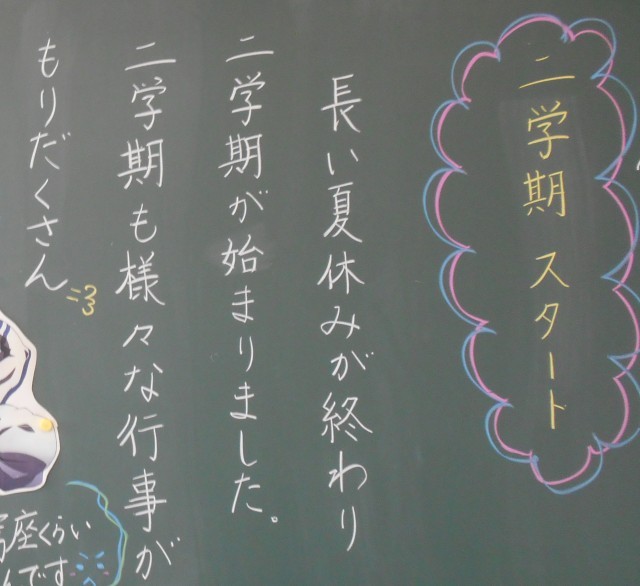 二学期 スタート
長い夏休みが終わり
二学期が始まりました。
二学期も様々な行事が
もりだくさん
座くらい
です